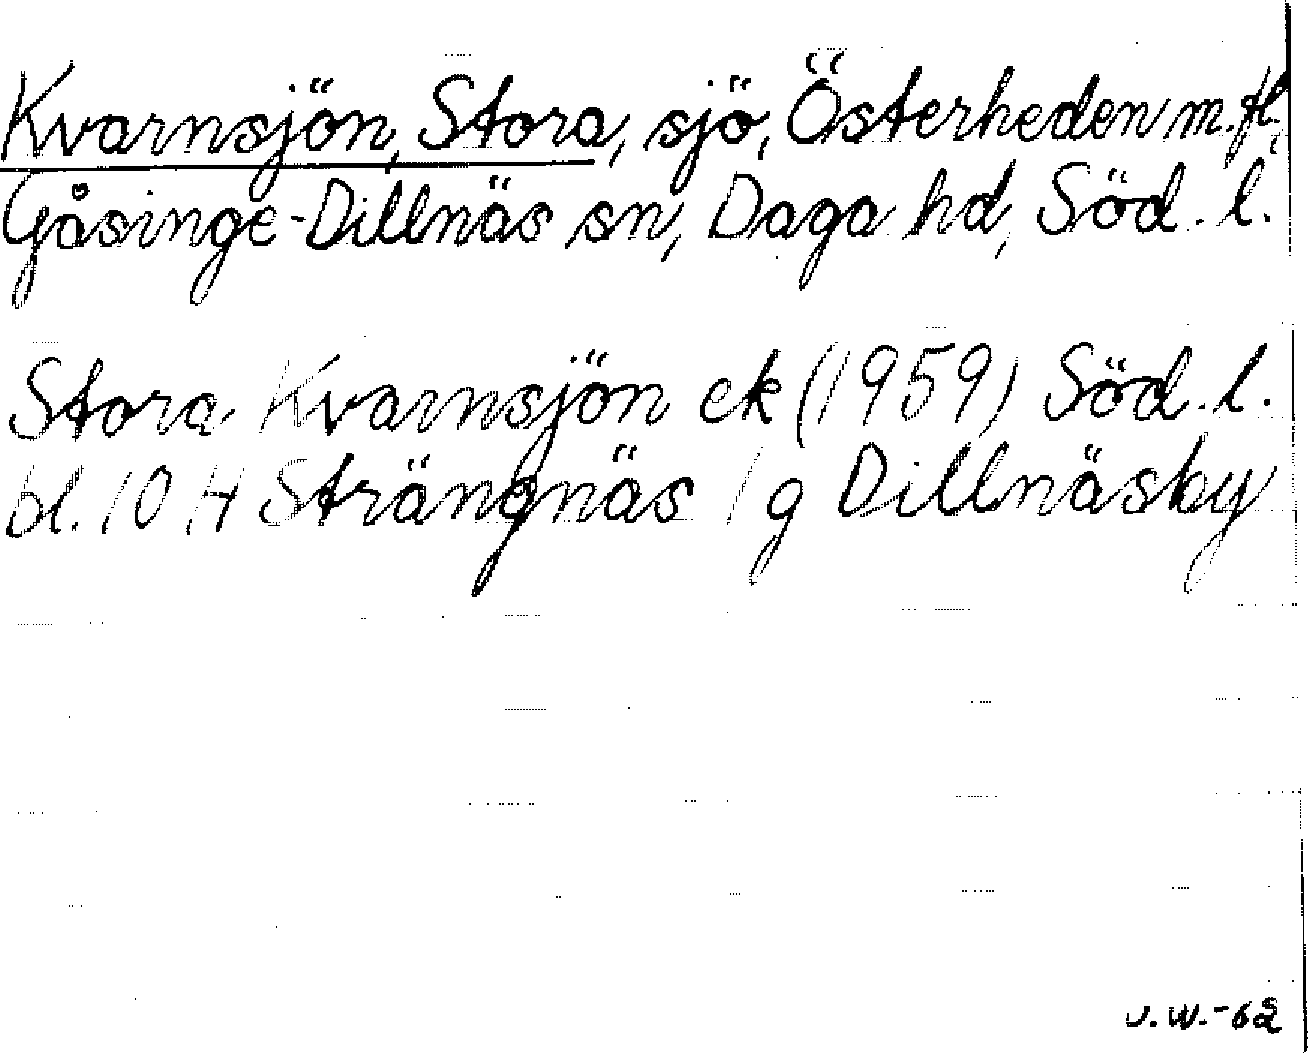 Kvarnsjön, Stora, sjö, Österheden m.fl.,
Gåsinge-Dillnäs sn, Daga hd, Söd. l.
Stora Kvarnsjön ek (1959) Söd. l.
bl. 10 H Strängnäs 1 g Dillnäsby
U.W.-62